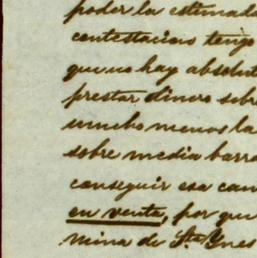 poder la estimada
contestacion tengo
que no hay absolut
prestar dinero sobr
mucho menos la
sobre media barra
conseguir esa can
en venta, por que
mina de Sta Ynes